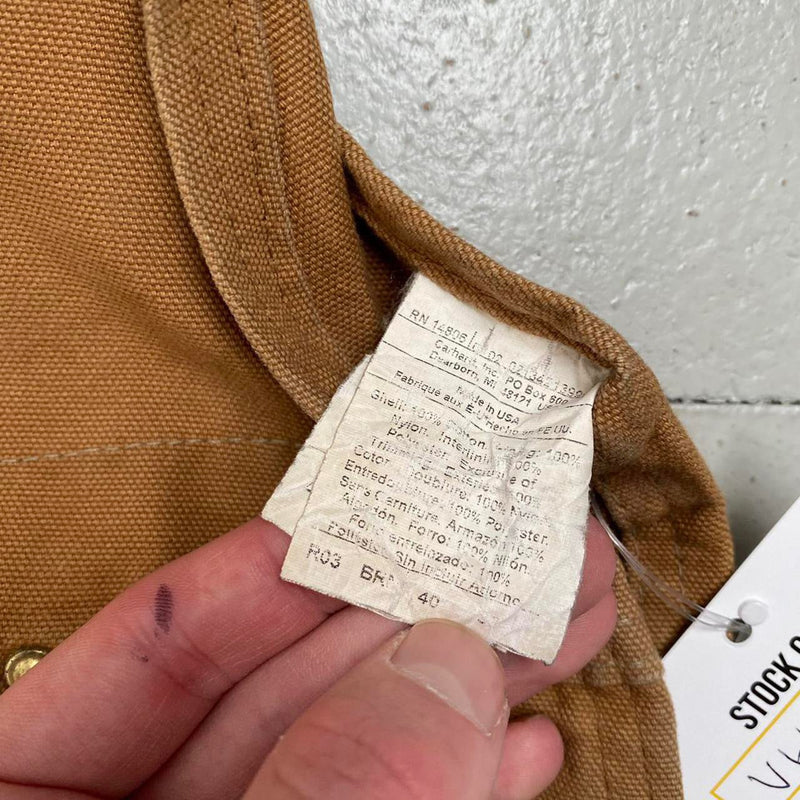 RN 14806
Carhartt, Inc. PO Box 600
Dearborn, MI, 48121
Made in USA
Fabriqué aux E-U Hecho en EE.UU.
Shell: 100% Cotton, 100%
Nylon, Interlining: 100%
Polyester Exclusive of
Trimming Exterieur 100%
Coton, Doublure: 100% Nylon,
Entredoublure: 100% Polyester,
Sans Garniture, Armazón 100%
Algodón, Forro: 100% Nilón,
Forro entrelazado: 100%
Poliéster Sin Incluir Adorno
R03 BRN 40
STOCK